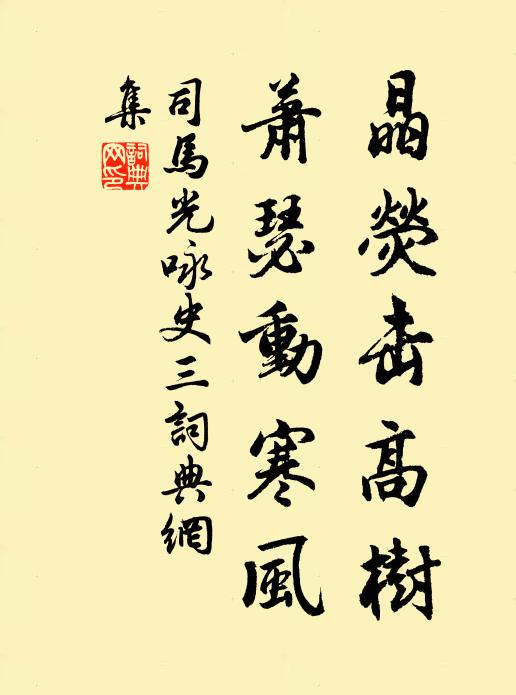 晶熒出高樹
蕭瑟動寒風
司馬光咏史三詞典網
集
詞典網印